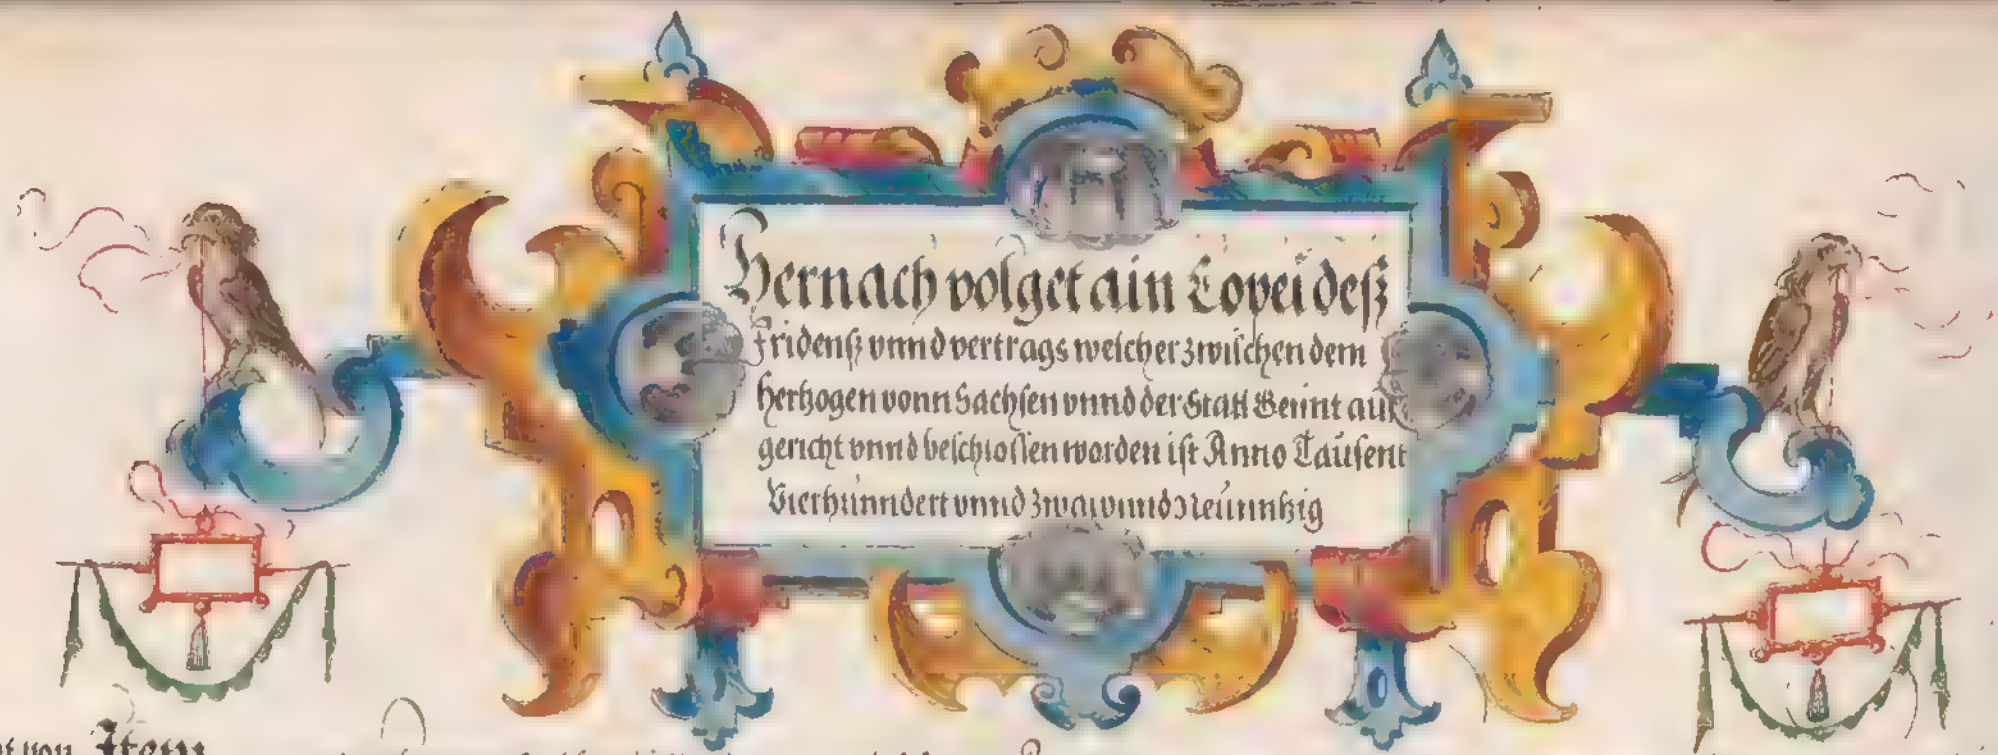 Hernach volget ain Copei deß
Fridenß vnnd vertrags welcher zwischen dem
Hertzogen vonn Sachsen vnnd der Statt Gennt auf
gericht vnnd beschlossen worden ist Anno Tausent
Vierhunndert vnnd zwaivnnd Neünntzig
Item